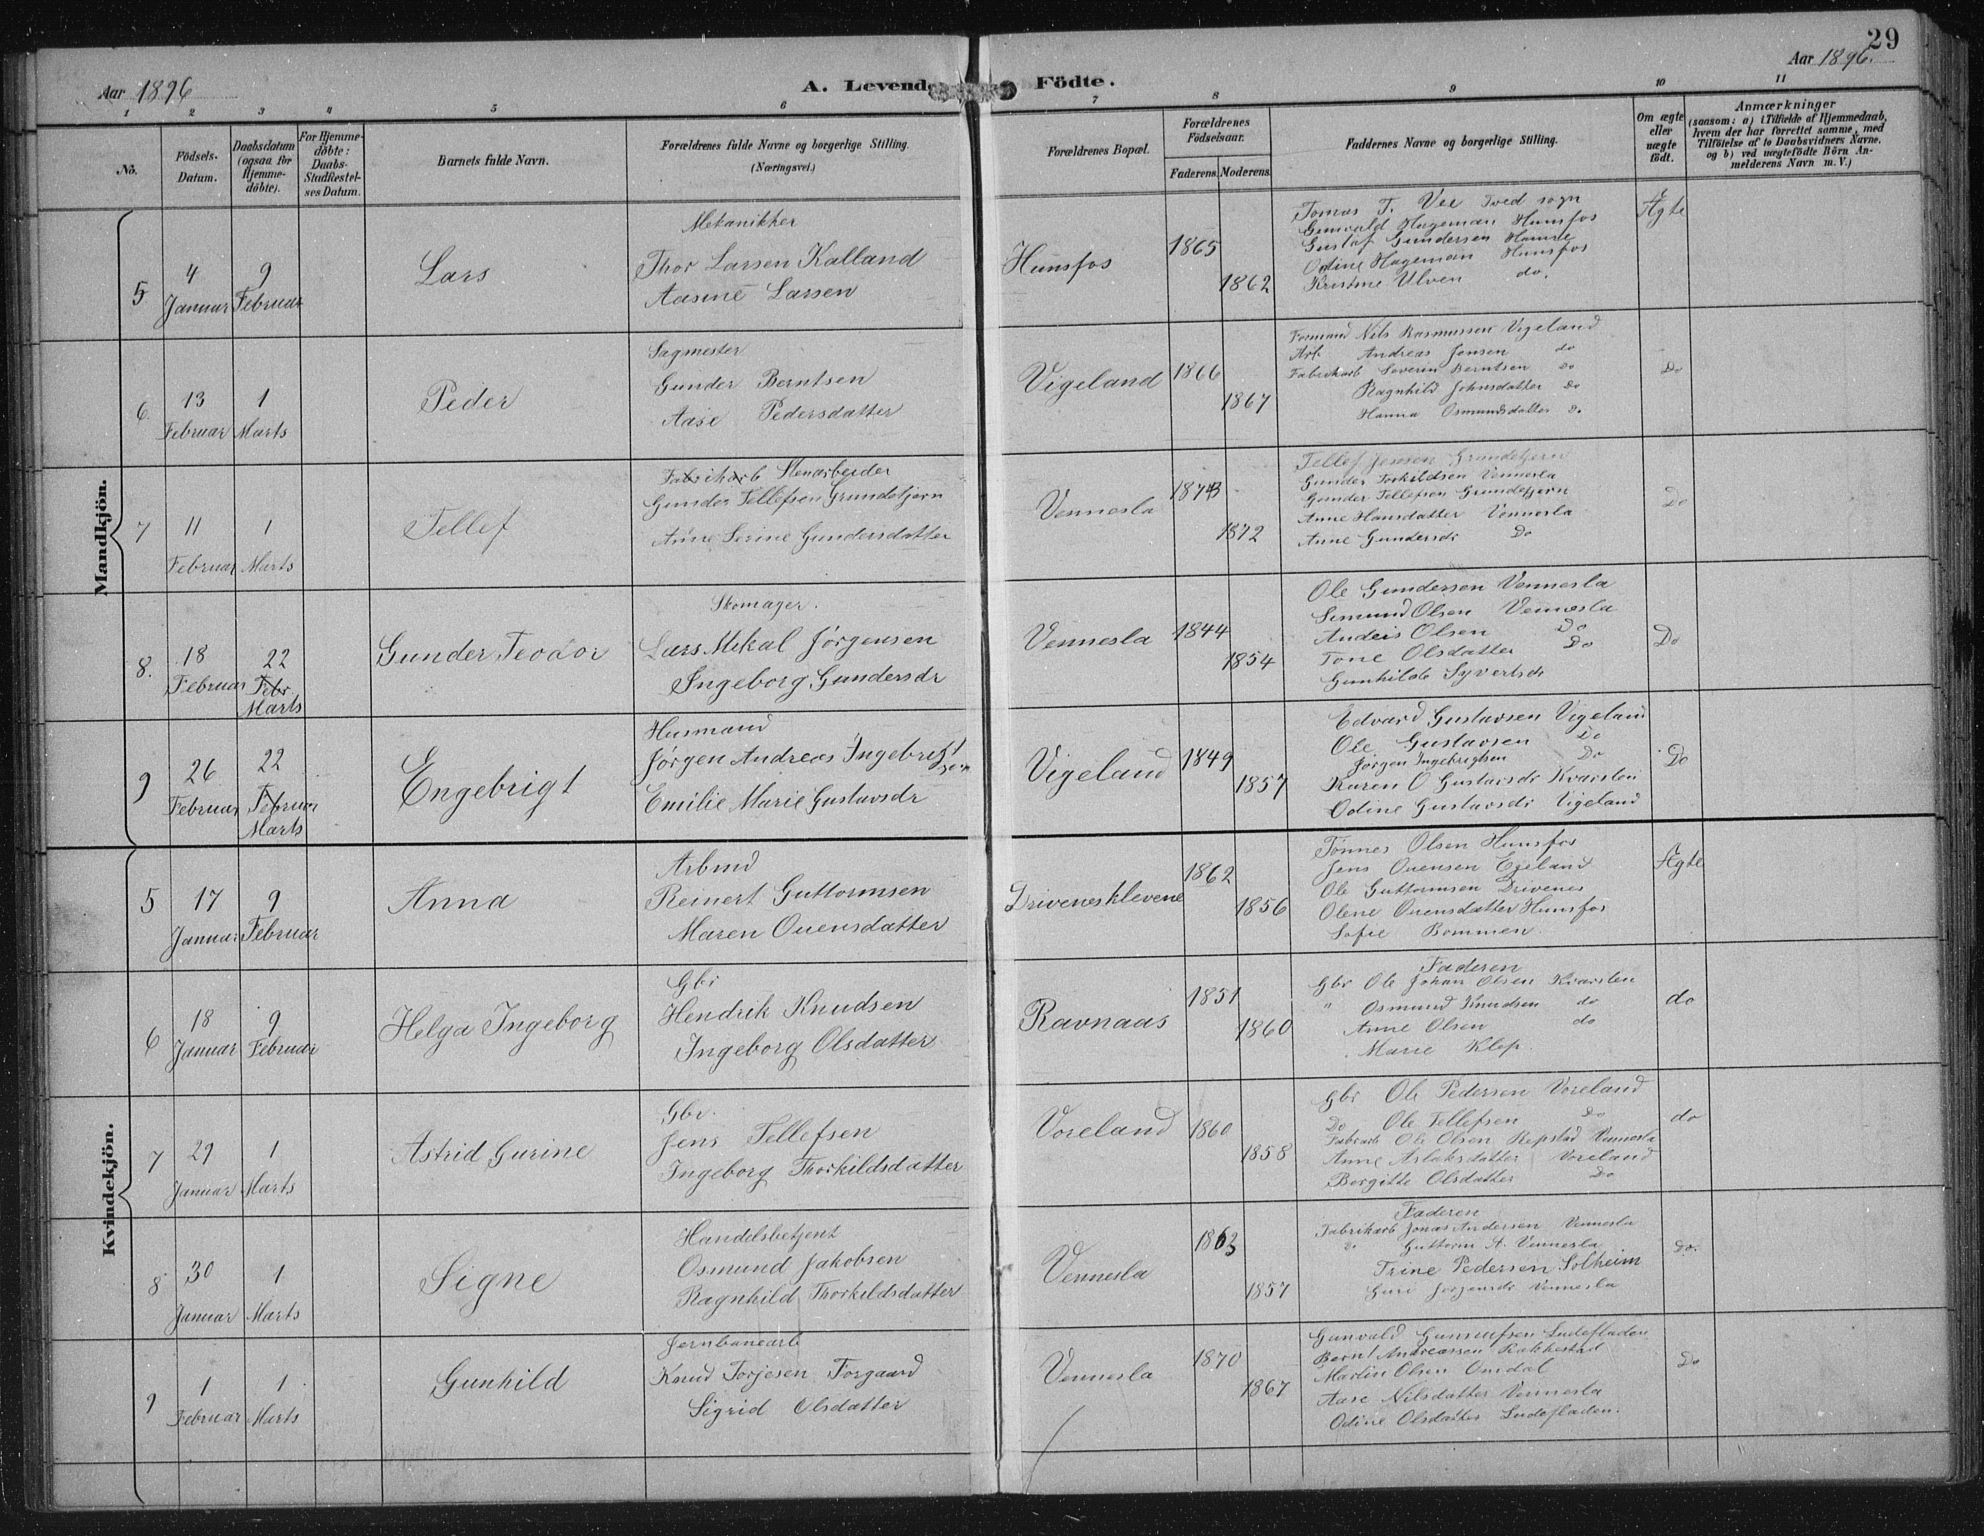 29
Aar 1896
A. Levende Födte.
Aar 1896.
1 2 3 4 5 6 7 8 9 10 11
No.
Födsels-
Datum.
Daabsdatum
(ogsaa for
Hjemme-
döbte).
For Hjemme-
döbte:
Daabs-
Stadfæstel-
ses Datum.
Barnets fulde Navn.
Forældrenes fulde Navne og borgerlige Stilling.
(Næringsvei.)
Forældrenes Bopæl.
Forældrenes
Födselsaar.
Faderens. Moderens.
Faddernes Navne og borgerlige Stilling.
Om ægte
eller
uægte
födt.
Anmærkninger
(saasom: a) i Tilfælde af Hjemmedaab,
hvem der har forrettet samme, med
Tilföielse af to Daabsvidners Navne,
og b) ved uægtefödte Börn An-
melderens Navn m. V.)
Mandkjön.
5
4
Januar
9
Februar
Lars
Mekanikker
Thor Larsen Kalland
Aasine Larsen
Hunsfos
1865
1862
Tomas T. Vee Tved sogn
Gunvald Hageman Hunsfos
Gustaf Gundersen Hamre
Odine Hageman Hunsfos
Kristine Ulven do.
Ægte
6.
13
Februar
1
Marts
Peder
Sagmester
Gunder Berntsen
Aase Pedersdatter
Vigeland
1866
1867
Formand Nils Rasmussen Vigeland
Arb Andreas Jensen do
Fabrikarb Severin Berntsen do
Ragnhild Johnsdatter do
Hanna Osmundsdatter d.
Do
7
11
Februar
1
Marts
Tellef
Fabrikarb Stenarbeider
Gunder Tellefsen Grundetjern
Anne Serine Gundersdatter
Vennesla
1873
1872
Tellef Jensen Grundetjern
Gunder Torkildsen Vennesla
Gunder Tellefsen Grundetjern
Anne Hansdatter Vennesla
Anne Gundersdr Do
Do
8.
18
Februar
22
Febr.
Marts
Gunder Teodor
Skomager.
Lars Mekal Jørgensen
Ingeborg Gundersdr
Vennesla
1844
1854
Ole Gundersen Vennesla
Simund Olsen Vennesla
Anders Olsen Do
Tone Olsdatter Do
Gunhild Syvertsdr
Do
9
26
Februar
22
Februar
Marts
Engebrigt
Husmand
Jørgen Andreas Ingebrigtsen
Emilie Marie Gustavsdr
Vigeland
1849
1857
Edvard Gustavsen Vigeland
Ole Gustavsen Do
Jørgen Ingebrigtsen Do
Karen O Gustavsdr Kvarsten
Odine Gustavsdr Vigeland
Do
Kvindekjön.
5
17
Januar
9
Februar
Anna
Arbmd
Reinert Guttormsen
Maren Ouensdatter
Driveneskleven
1862
1856
Tønnes Olsen Hunsfos
Jens Ouensen Egeland
Ole Guttormsen Drivenes
Olene Ouensdatter Hunsfos
Sofie Bommen
Ægte
6
18
Januar
9
Februar
Helga Ingeborg
Gbr
Hendrik Knudsen
Ingeborg Olsdatter
Ravnaas
1851
1860
Faderen
Gbr Ole Johan Olsen Kvarsten
" Osmund Knudsen do
Anne Olsen do
Marie Klep.
do
7
29
Januar
1
Marts
Astrid Gurine
Gbr.
Jens Tellefsen
Ingeborg Thorkildsdatter
Voreland
1860
1858
Gbr Ole Pedersen Voreland
Do Ole Tellefsen Do
Fabrarb Ole Olsen Repstad Vennesla
Anne Aslaksdatter Voreland
Bergitte Olsdatter Do
do
8
30
Januar
1
Marts
Signe
Handelsbetjent
Osmund Jakobsen
Ragnhild Thorkildsdatter
Vennesla
1863
1857
Faderen
Fabrikarb Jonas Andersen Vennesla
Do Guttorm A. Vennesla
Trine Pedersen Solheim
Guri Jørgensdr Vennesla
Do.
9
1
Februar
1
Marts
Gunhild
Jernbanearb
Knud Torjesen Forgaard
Sigrid Olsdatter
Vennesla
1870
1867
Gunvald Gunnufsen Ludefladen
Bernt Andreassen Rakkestad
Martin Olsen Omdal
Aase Nilsdatter Vennesla
Odine Olsdatter Ludefladen.
Do